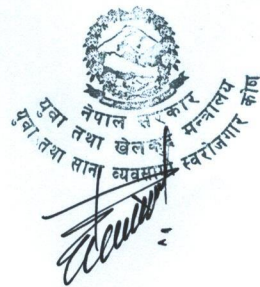 नेपाल सरकार
युवा तथा खेलकूद मन्त्रालय
युवा तथा साना व्यवसायी स्वरोजगार कोष